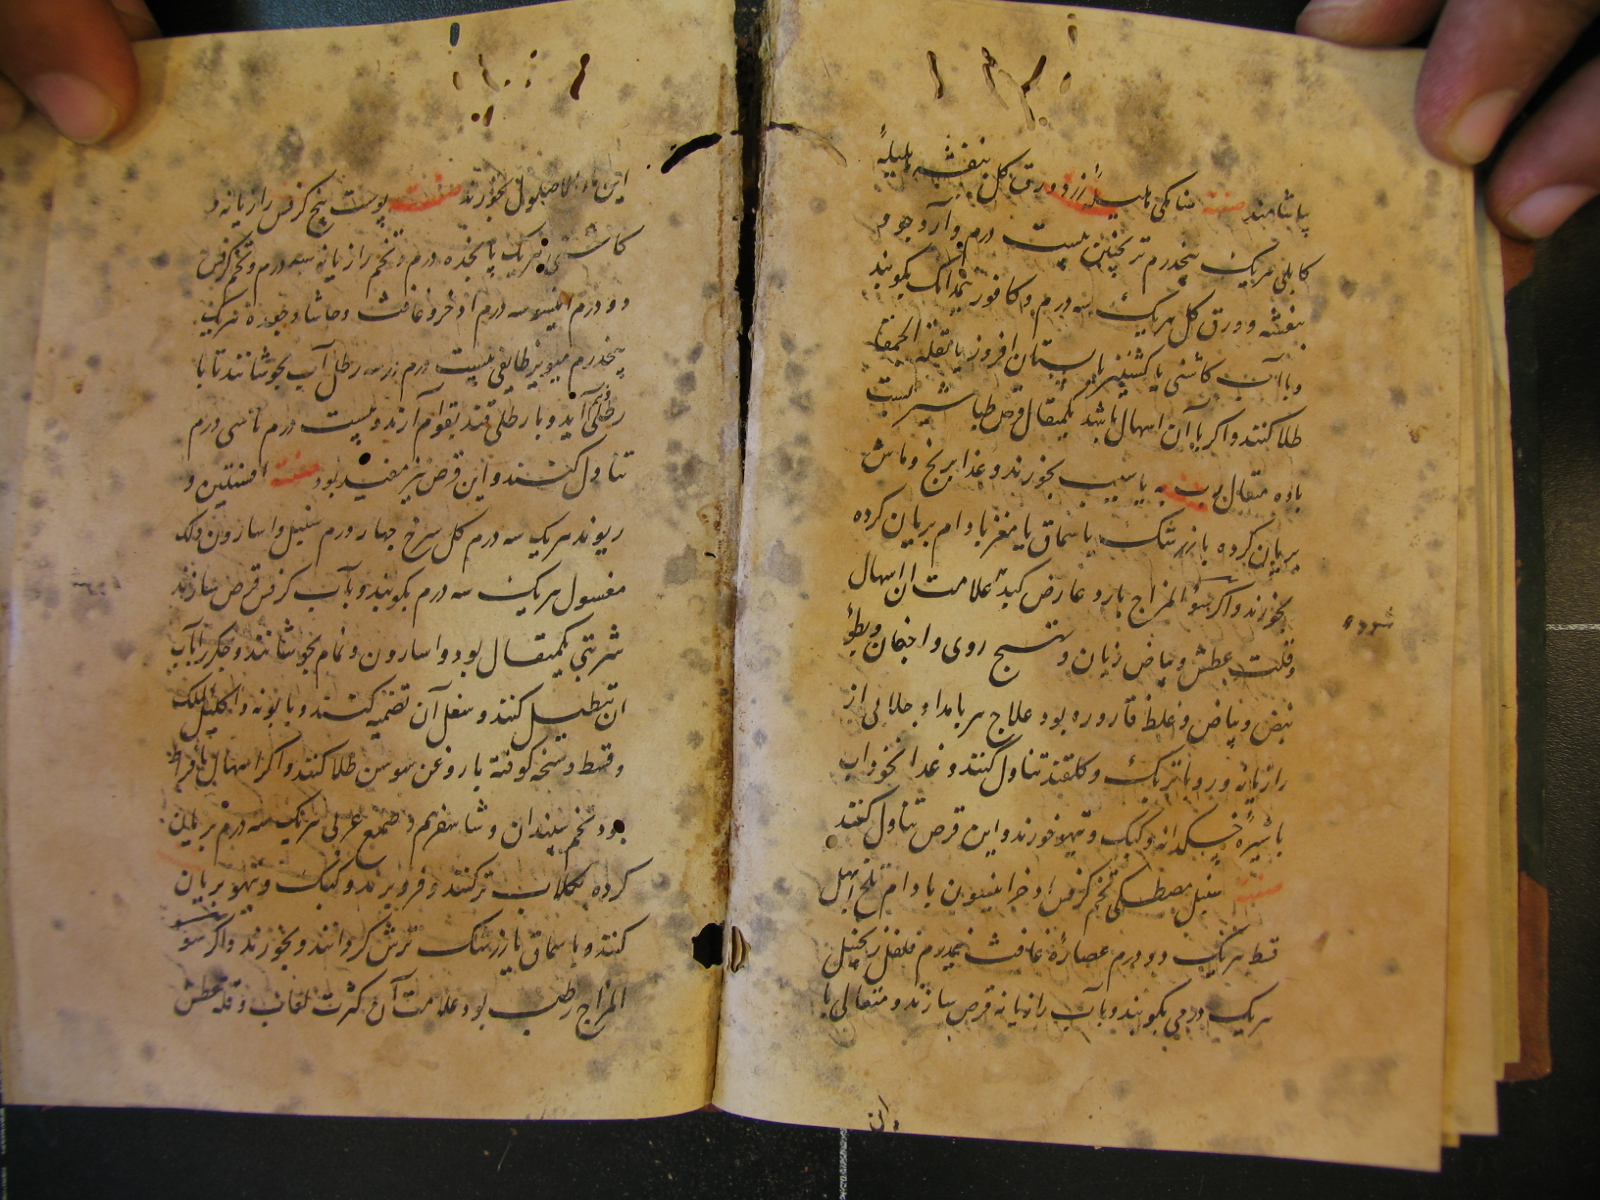 بیاشامند صفته سنامکی هلیله زرد ورق گل بنفشه هلیلهٔ
کابلی هریک پنجدرم ترنجبین بیست درم و آرد جو و
بنفشه و ورق گل هریک سه درم و کافور نیمدانک بکوبند
و با آب کاسنی یا کشنیز یا بستان افروز یا بقلة الحمقا
طلا کنند و اگر با آن اسهال باشد یکمثقال قرص طباشیر بست
با ده مثقال رب به یا سیب بخورند و غذا برنج و ماش
بریان کرده با زرشک یا سماق یا مغز بادام بریان کرده
بخورند و اگر سوء المزاج بارد عارض کبد شد علامت آن اسهال
و قلت عطش و بیاض زبان و تهبج روی و اجفان و بطؤ
نبض و بیاض و غلظ قاروره بود علاج هر بامداد جلابی از
رازیانه و روناتریک و گلقند تناول کنند و غدا نخوداب
با شیرهٔ خسکدانه و کبک و تیهو خورند و این قرص تناول کنند
صفته سنبل مصطکی تخم کرفس اذخر انیسون بادام تلخ ابهل
قسط هریک دو درم عصارهٔ غافث نیمدرم فلفل زنجبیل
هریک درمی بکوبند و بآب رازیانه قرص سازند و مثقالی با
این
این ماء الاصول بخورند صفته پوست بیخ کرفس رازیانه و
کاسنی هریک پانجده درم و تخم رازیانه سه درم و تخم کرفس
دو درم انیسون سه درم اذخر و غافث و حاشا و جعده هریک
پنجدرم میویز طایفی بیست درم در سه رطل آب بجوشانند تا با
رطلی و نیم آید و با رطلی قند بقوام آرند و بیست درم تا سی درم
تناول کنند و این قرص نیز مفید بود صفته افسنتین و
ریوند هریک سه درم گل سرخ چهار درم سنبل و اسارون و لک
مغسول هریک سه درم بکوبند و بآب کرفس قرص سازند
شربتی یکمثقال بود و اسارون و نمام بجوشانند و جگر را بآب
آن تنطیل کنند و بثفل آن تضمید کنند و بابونه و اکلیل الملک
و قسط و سلیخه کوفته با روغن سوسن طلا کنند و اگر اسهال بافراط
بود تخم سپندان و شاهسفرم و صمغ عربی هریک سه درم بریان
کرده بگلاب تر کنند و فرو برند و کبک و تیهو بریان
کنند و با سماق یا زرشک ترش گردانند و بخورند و اگر سوء
المزاج رطب بود علامت آن کثرت لعاب و قلة عطش